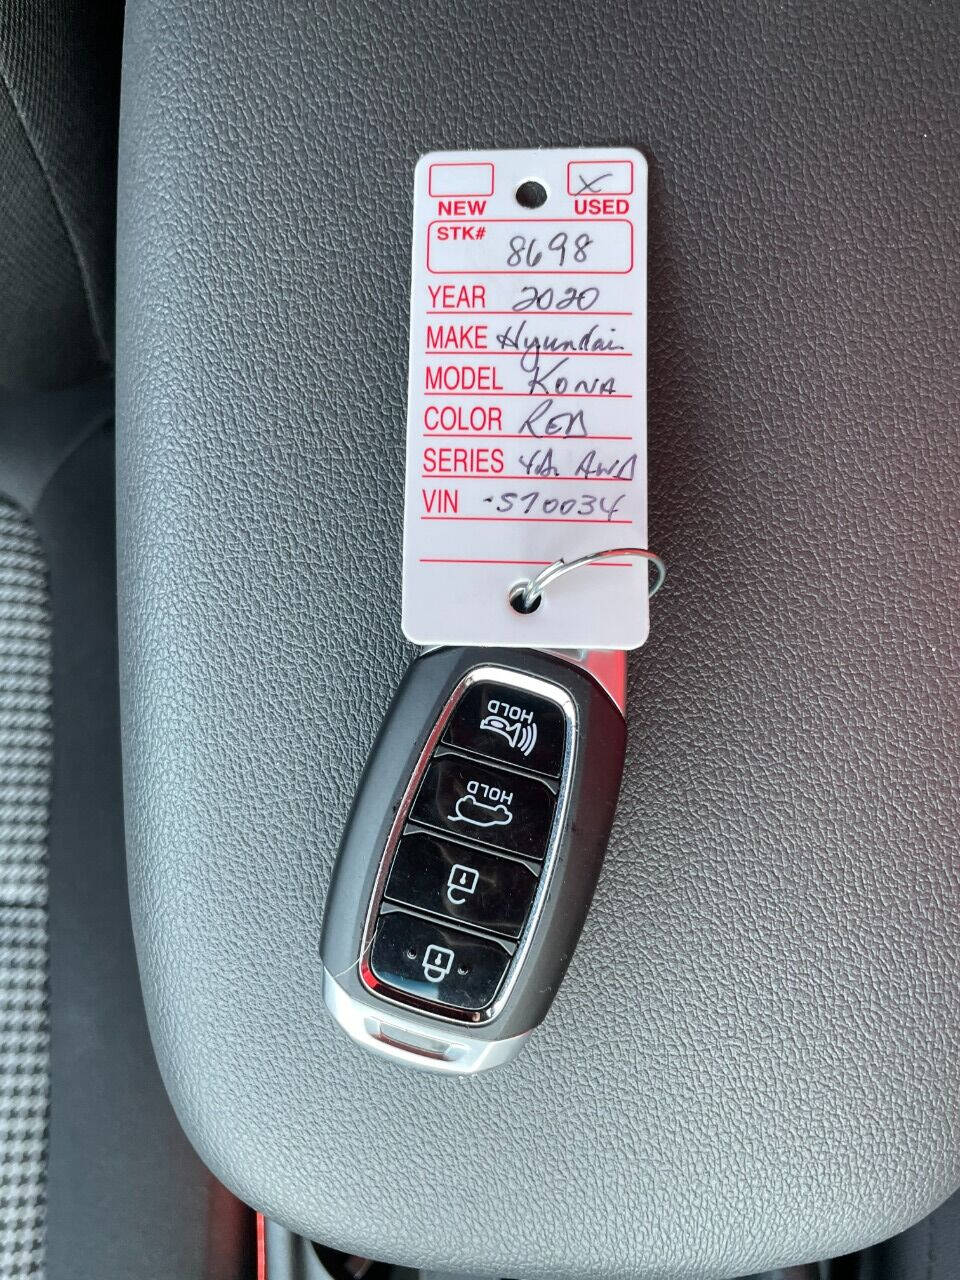 X
NEW USED
STK# 8698
YEAR 2020
MAKE Hyundai
MODEL KONA
COLOR RED
SERIES AWD
VIN 570034
HOLD
HOLD